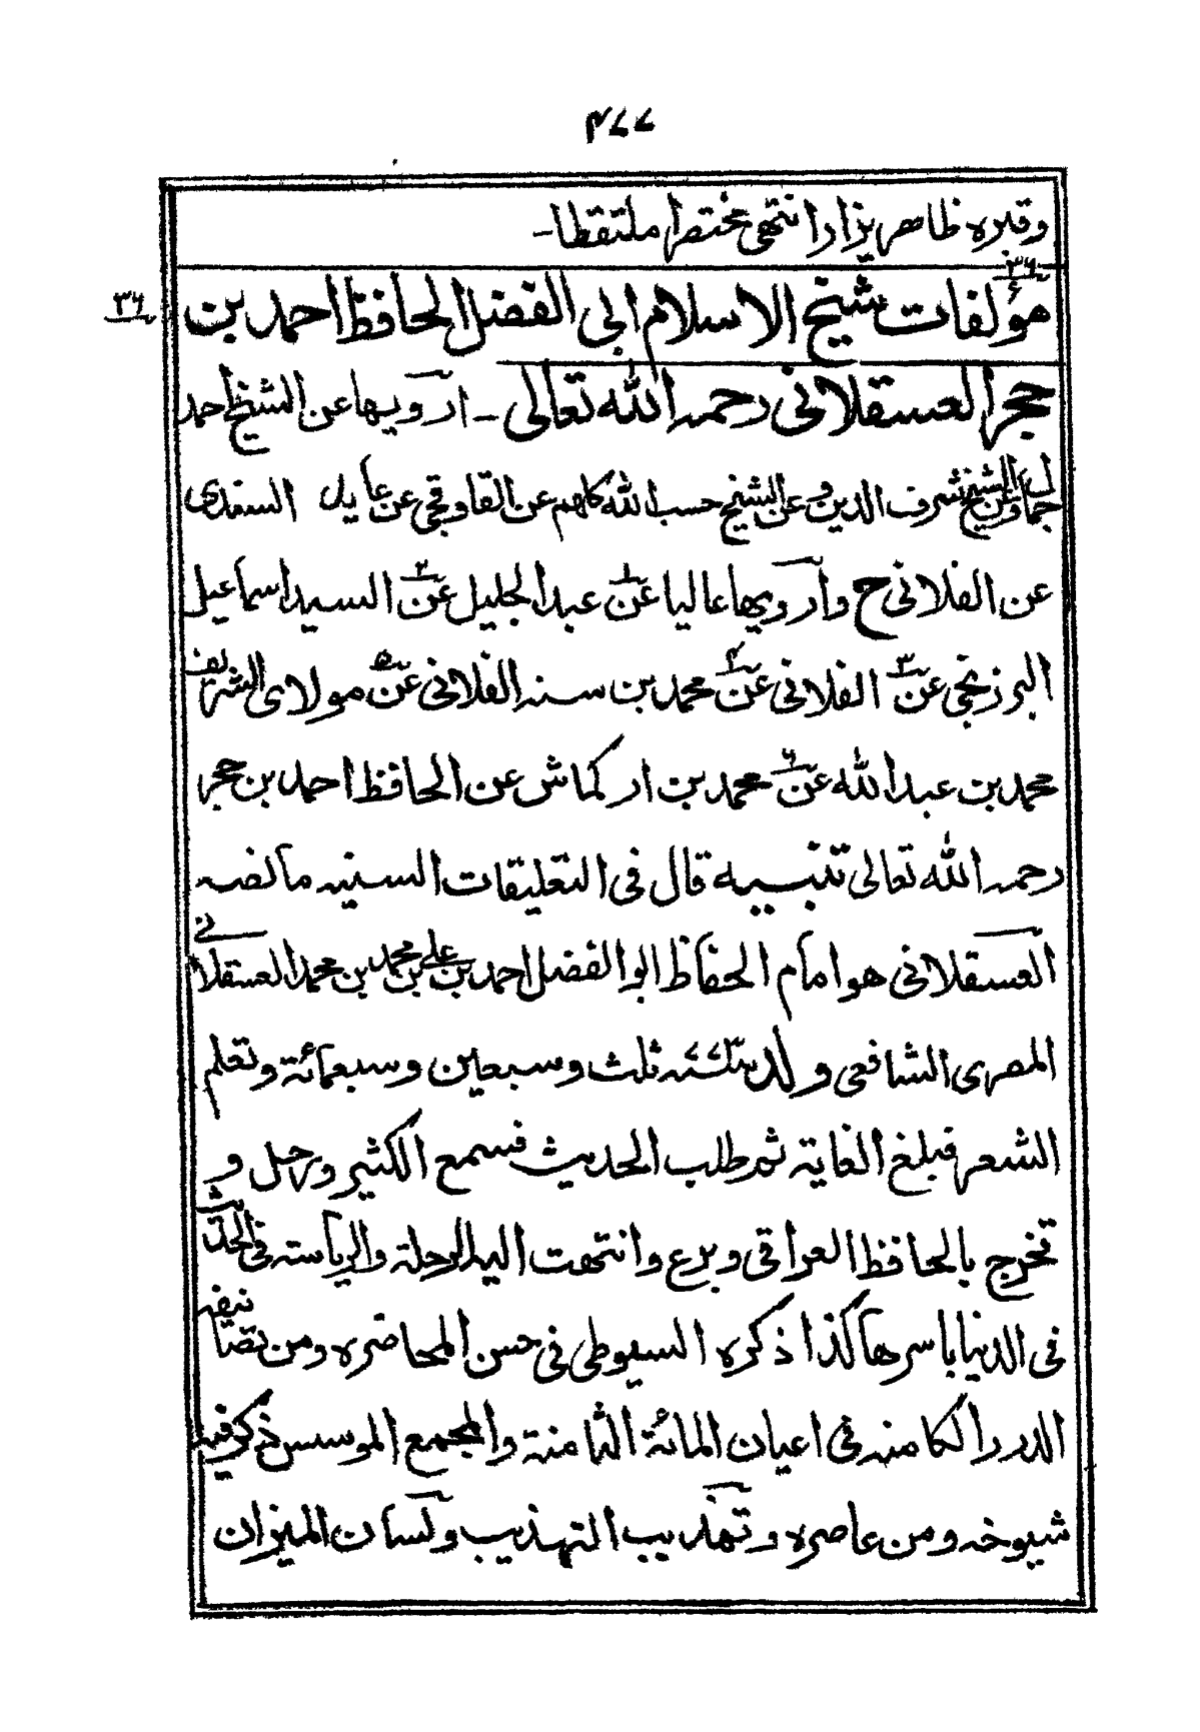 ٤٧٧
وقبره ظاهر يزار انتهى مختصرا ملتقطا-
٣٦
مؤلفات شيخ الاسلام ابى الفضل الحافظ احمد بن
٣٦
حجر العسقلانى رحمه الله تعالى - ارويها عن الشيخ احمد
جمال وعن الشيخ شرف الدين وعن الشيخ حسب الله كلهم عن القاوقجى عن عابد السندى
عن الفلانى ح وارويها عاليا عن١ عبد الجليل عن٢ السيد اسماعيل
البرزنجى عن٣ الفلانى عن٤ محمد بن سنه الفلانى عن٥ مولاى الشريف
محمد بن عبد الله عن٦ محمد بن اركماش عن الحافظ احمد بن حجر
رحمه الله تعالى تنبيه قال فى التعليقات السنيه مانصه
العسقلانى هو امام الحفاظ ابو الفضل احمد بن على بن محمد بن محمد العسقلانى
المصرى الشافعى ولد سنة ٧٧٣ ثلث وسبعين وسبعمائة وتعلم
الشعر فبلغ الغاية ثم طلب الحديث فسمع الكثير ورحل و
تخرج بالحافظ العراقى وبرع وانتهت اليه الرحلة والرياسة فى الحديث
فى الدنيا باسرها كذا ذكره السيوطى فى حسن المحاضره ومن تصانيفه
الدرر الكامنه فى اعيان المائة الثامنة والمجمع الموسس ذكر فيه
شيوخه ومن عاصره وتهذيب التهذيب ولسان الميزان